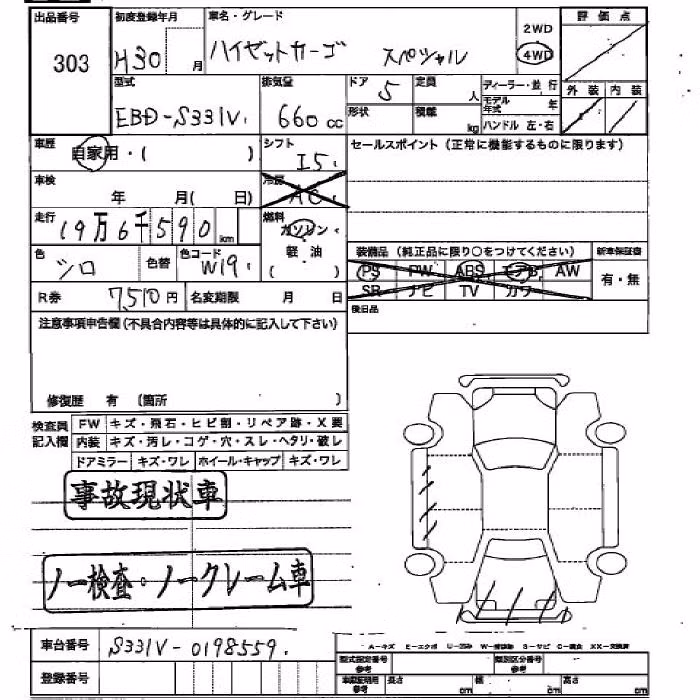 出品番号 初度登録年月 車名・グレード 2WD 評価点
303 H30 月 ハイゼットカーゴ スペシャル 4WD
型式 排気量 ドア 定員 ディーラー・並行 外装 内装
EBD-S331V 660cc 5 人 モデル年式 年
形状 積載 kg ハンドル 左・右
車歴 自家用・( ) シフト I5 セールスポイント(正常に機能するものに限ります)
車検 年 月( 日) 冷房 AC
走行 19万6千590km 燃料 ガソリン・
軽油
色 シロ 色替 色コード W19 装備品(純正品に限り○をつけてください) 新車保証書
PS PW ABS エアB AW 有・無
SR ナビ TV カワ
R券 7510円 名変期限 月 日 後日品
注意事項申告欄(不具合内容等は具体的に記入して下さい)
修復歴 有(箇所 )
検査員 FW キズ・飛石・ヒビ割・リペア跡・X要
記入欄 内装 キズ・汚レ・コゲ・穴・スレ・ヘタリ・破レ
ドアミラー キズ・ワレ ホイール・キャップ キズ・ワレ
事故現状車
ノー検査・ノークレーム車
車台番号 S331V-0198559
A-キズ E-エクボ
登録番号 型式指定番号 類別区分番号
参考 参考
車庫証明用 長さ 幅 高さ
参考 cm cm cm